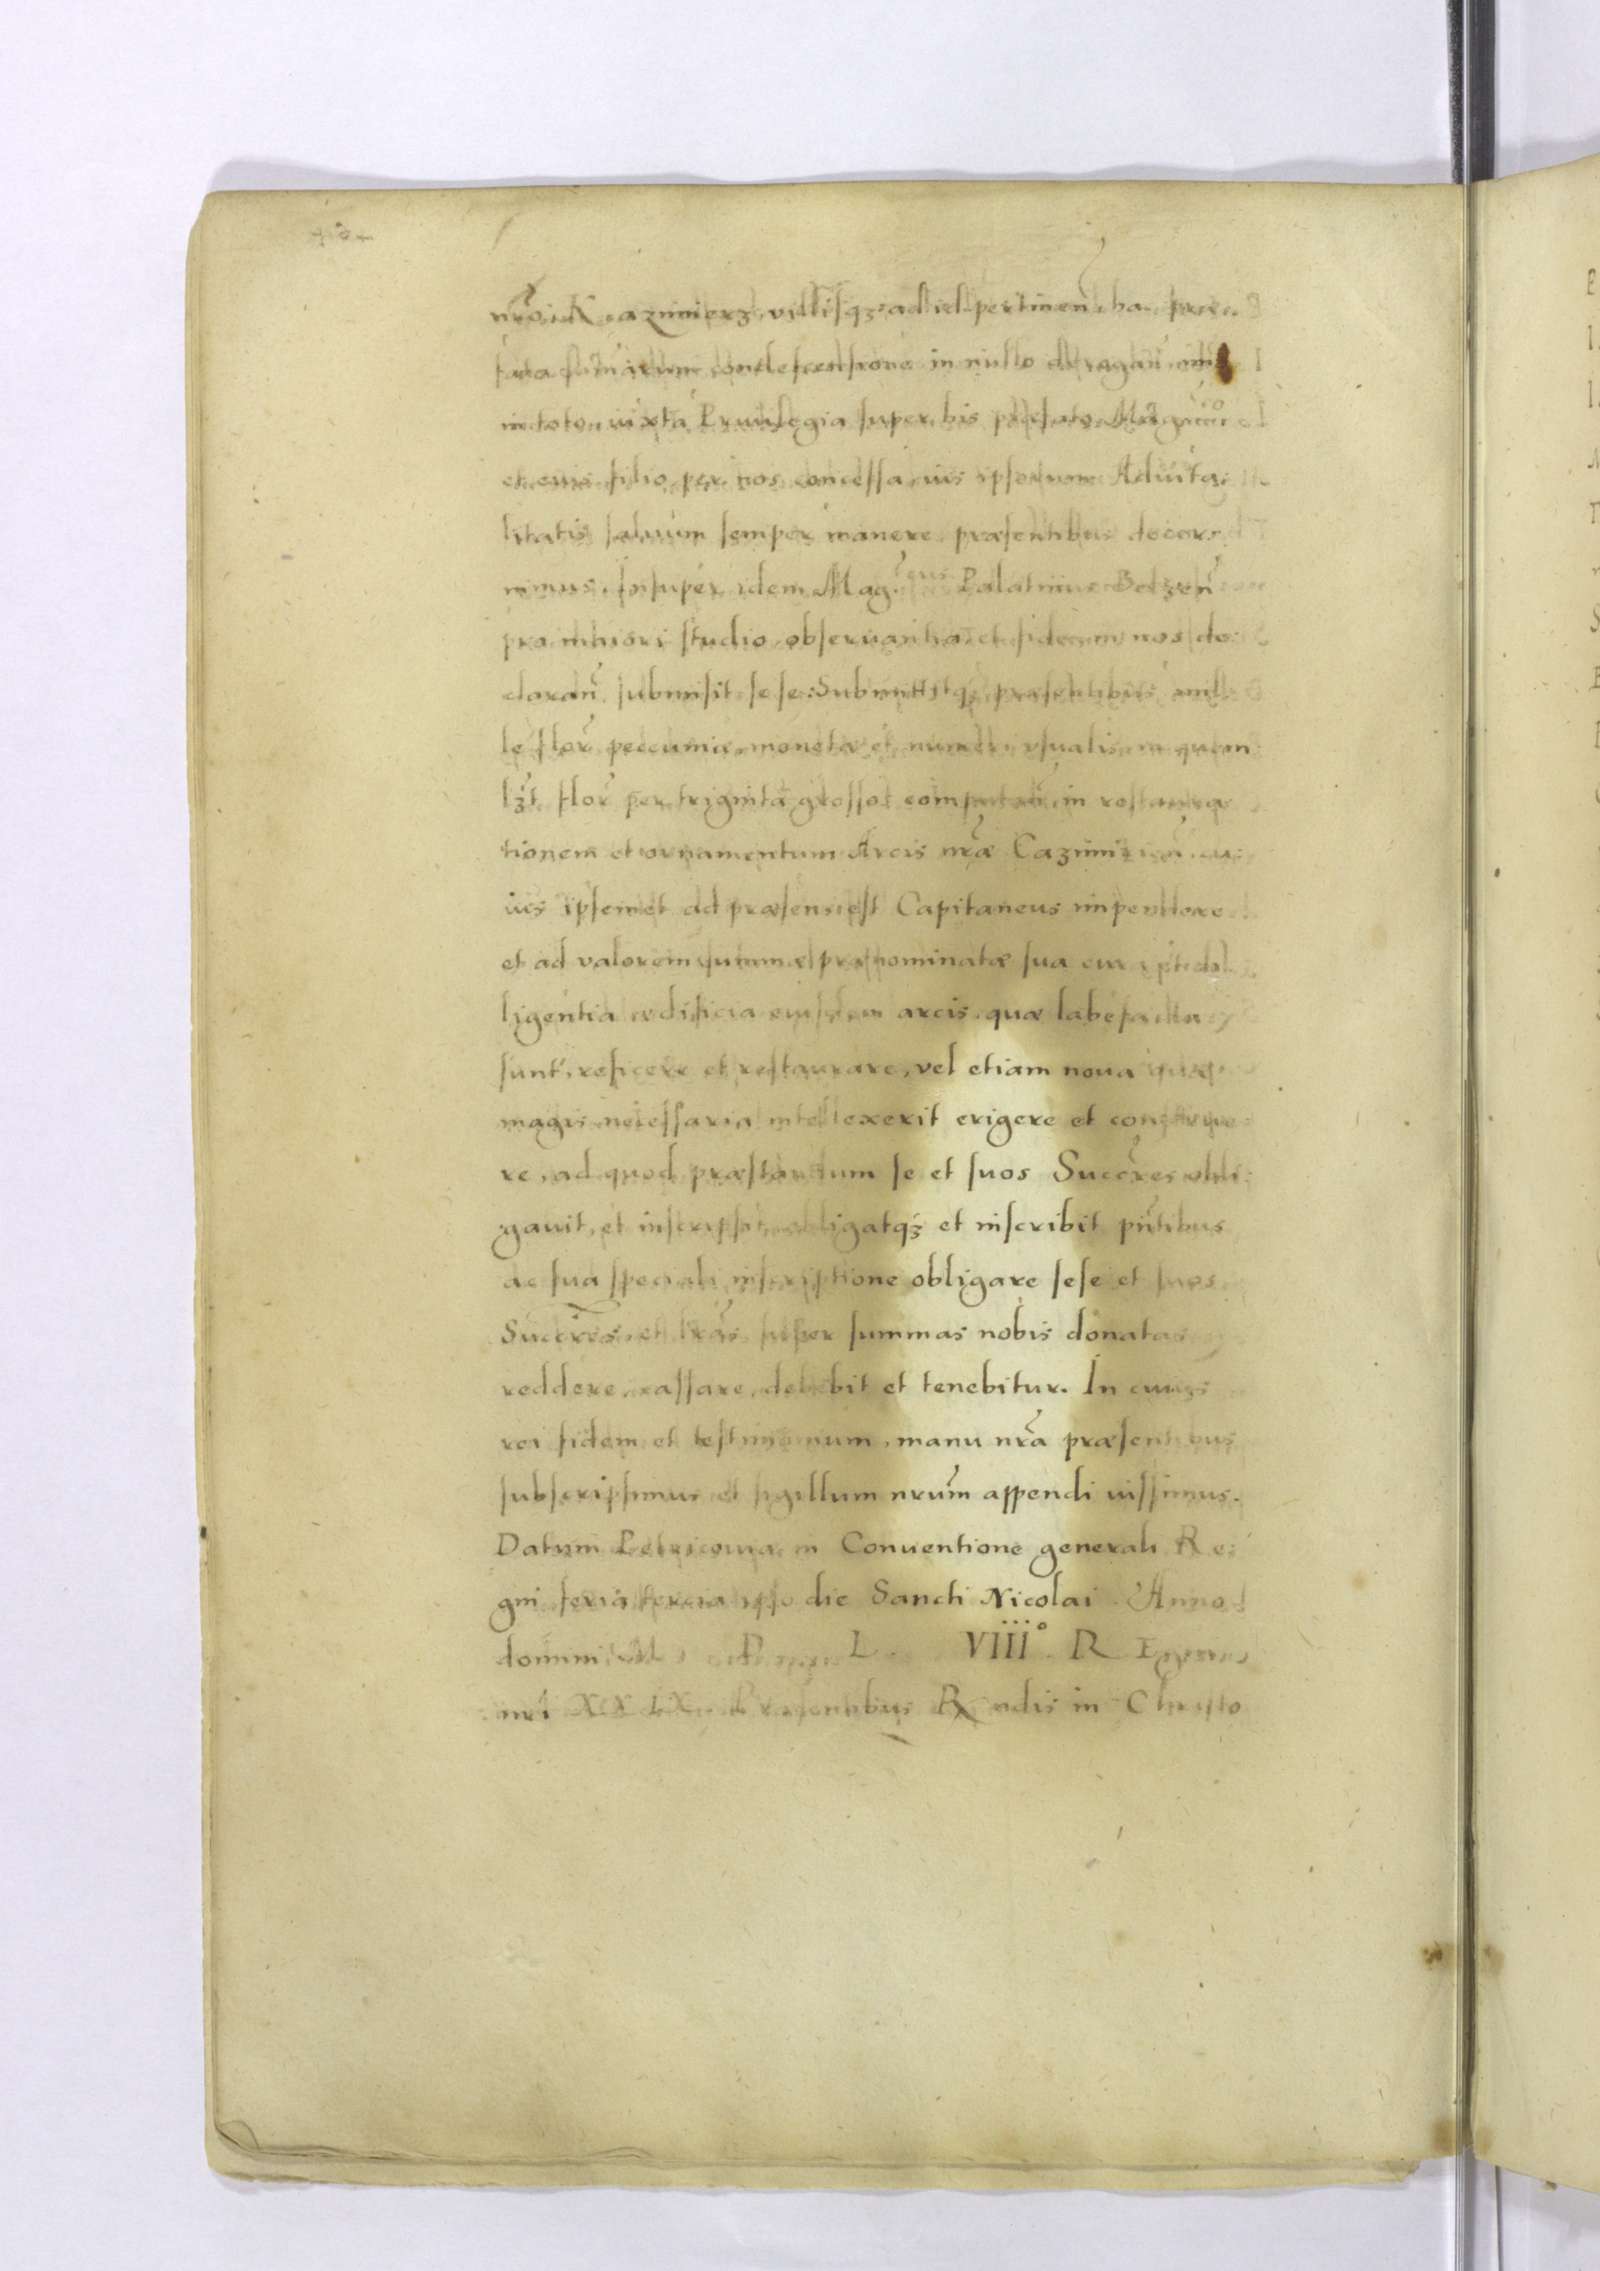 nr̄o Kazimierz, villisqꝫ ad id pertinen̄, hac præ
summarum condescensione in nullo derogan̄
in toto, iuxta Priuilegia super his præfato
et eius filio per nos concessa, ius ipsorum Aduita:
litatis saluum semper manere præsentibus decer:
nimus. Insuper idem Mag:cus Palatinus Belzen̄
pro maiori studio, obseruantia et fide in nos de:
claran̄ submisit sese: Submittitqꝫ præsentibus mil
le flor̄ peccuniæ monetæ et numeri vsualis in quem
lꝫt flor̄ per triginta grossos computan̄, in restaura
tionem et ornamentum Arcis nr̄æ Cazimirien̄, cu:
ius ipsemet ad præsens est Capitaneus impendere
et ad valorem summæ prænominatæ sua cura et di
ligentia ædificia eiusdem arcis, quæ labefacta
sunt, reficere et restaurare, vel etiam noua quæ
magis necessaria intellexerit erigere et constrúe
re, ad quod præstandum se et suos Succr̄es obli:
gauit, et inscripsit, obligatqꝫ et inscribit pn̄tibus
ac sua speciali inscriptione obligare sese et suos
Succr̄es, et lr̄as super summas nobis donatas
reddere, cassare, debebit et tenebitur. In cuius
rei fidem et testimonium, manu nr̄a præsentibus
subscripsimus et sigillum nrūm appendi iussimus.
Datum Petricouiæ in Conuentione generali Re:
gni feria tercia ipso die Sancti Nicolai Anno
domini M D L VIII° REgni
nri XXIX Præsentibus Rndis in Christo